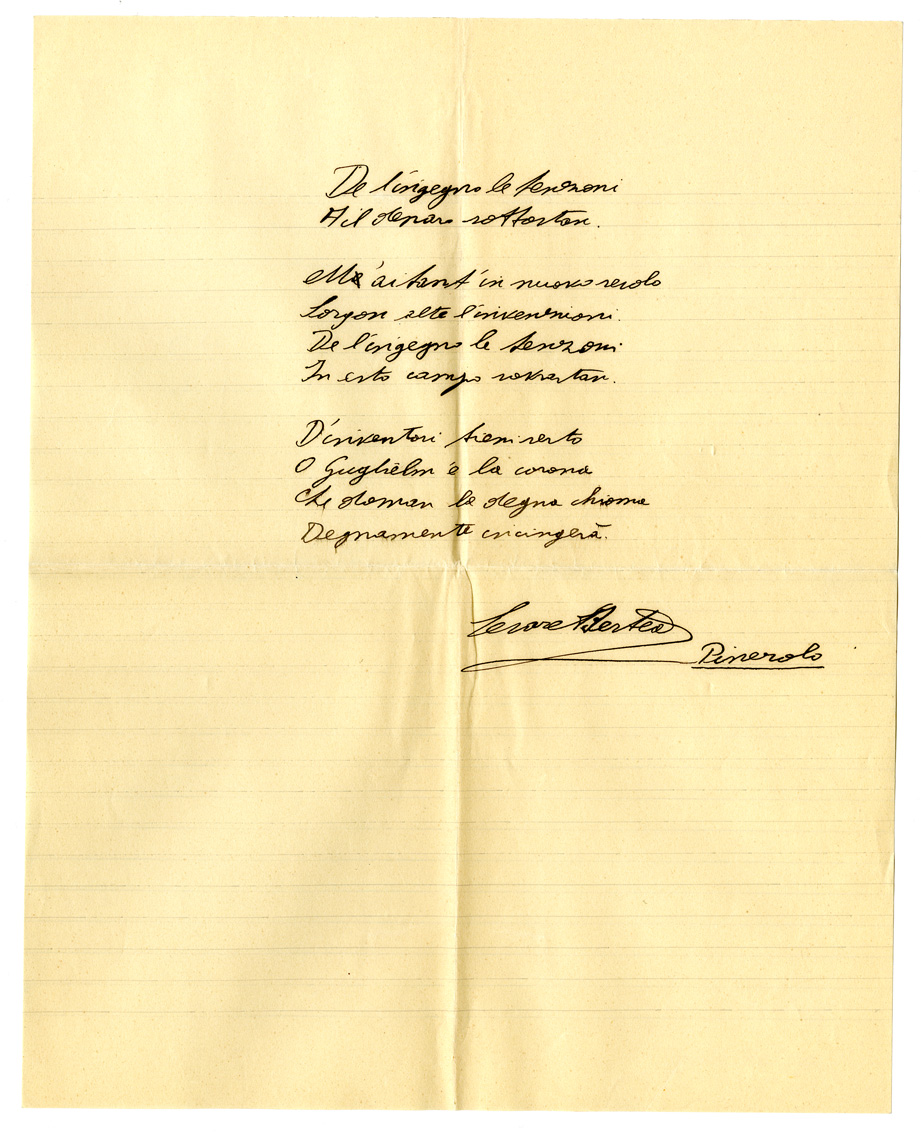 De l'ingegno le tenzoni
A il denaro sottostan.
Ma ai tant' in nuovo secolo
Sorgon alte l'invenzioni.
De l'ingegno le tenzoni
In esto campo sovrastan.
D'inventori sieni serto
O Guglielm è la corona
Che doman la degna chioma
Degnamente incingerà.
Cesare Bertea
Pinerolo